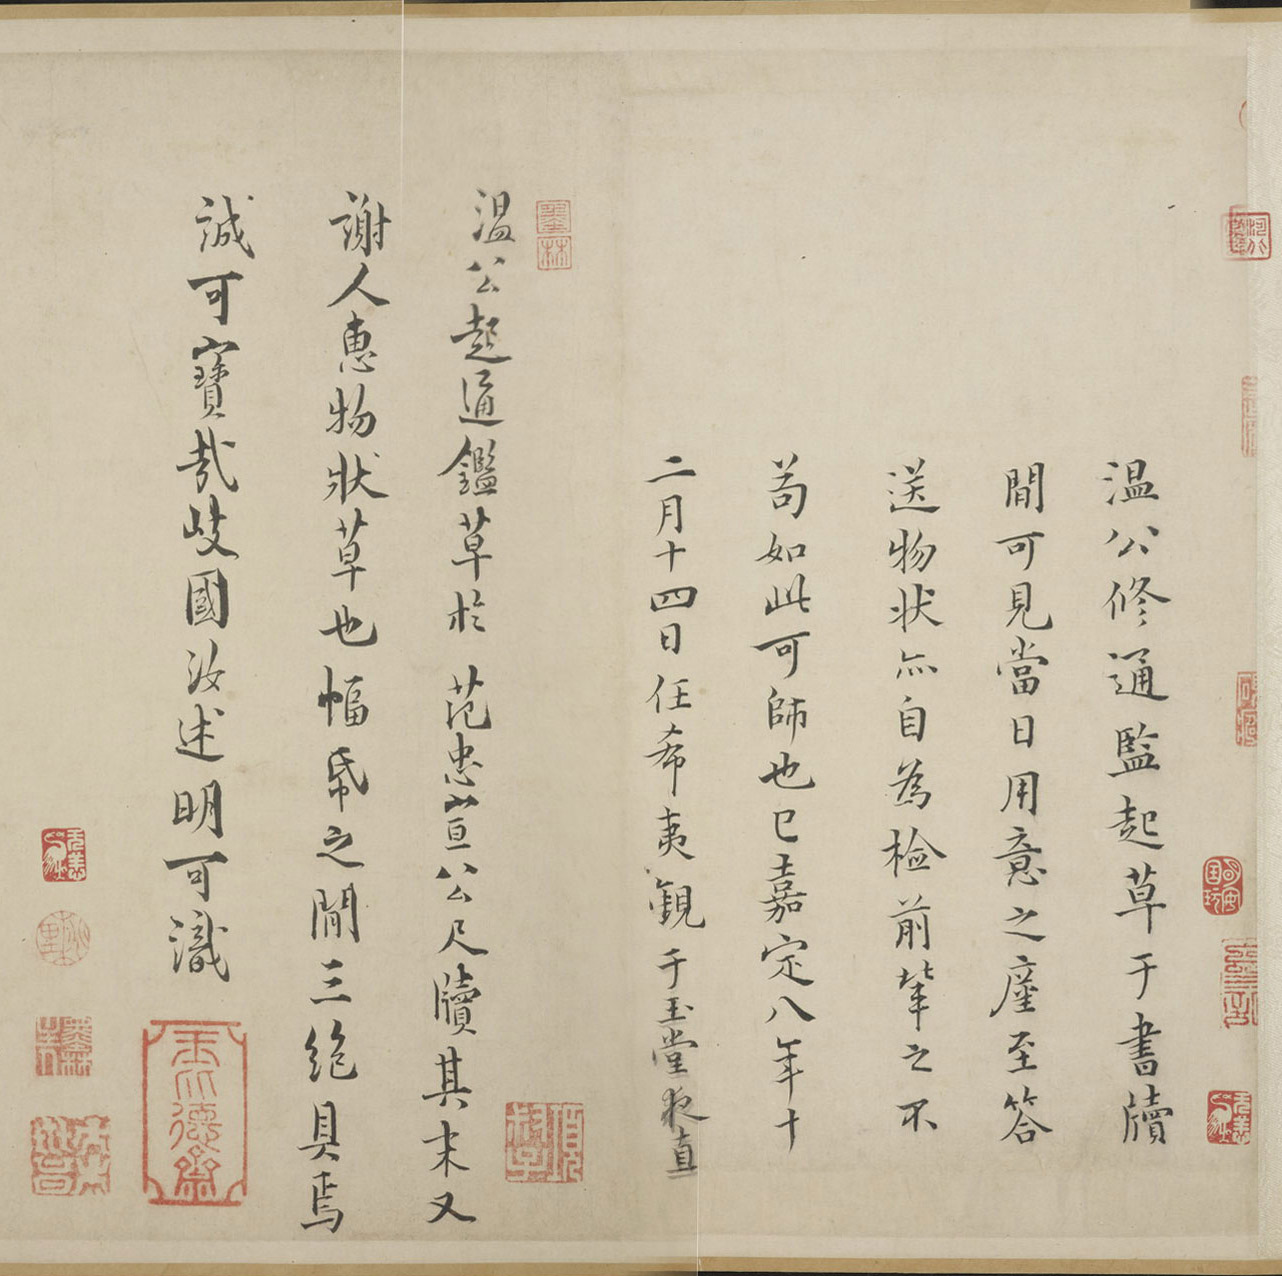 温公修通監起草于書牘
間可見當日用意之廑至答
送物状亦自為檢前軰之不
苟如此可師也巳嘉定八年十
二月十四日任希夷觀于玉堂夜直
温公起通鑑草於范忠宣公尺牘其末又
謝人惠物狀草也幅帋之間三絶具焉
誠可寶哉岐國汝述明可識
墨林